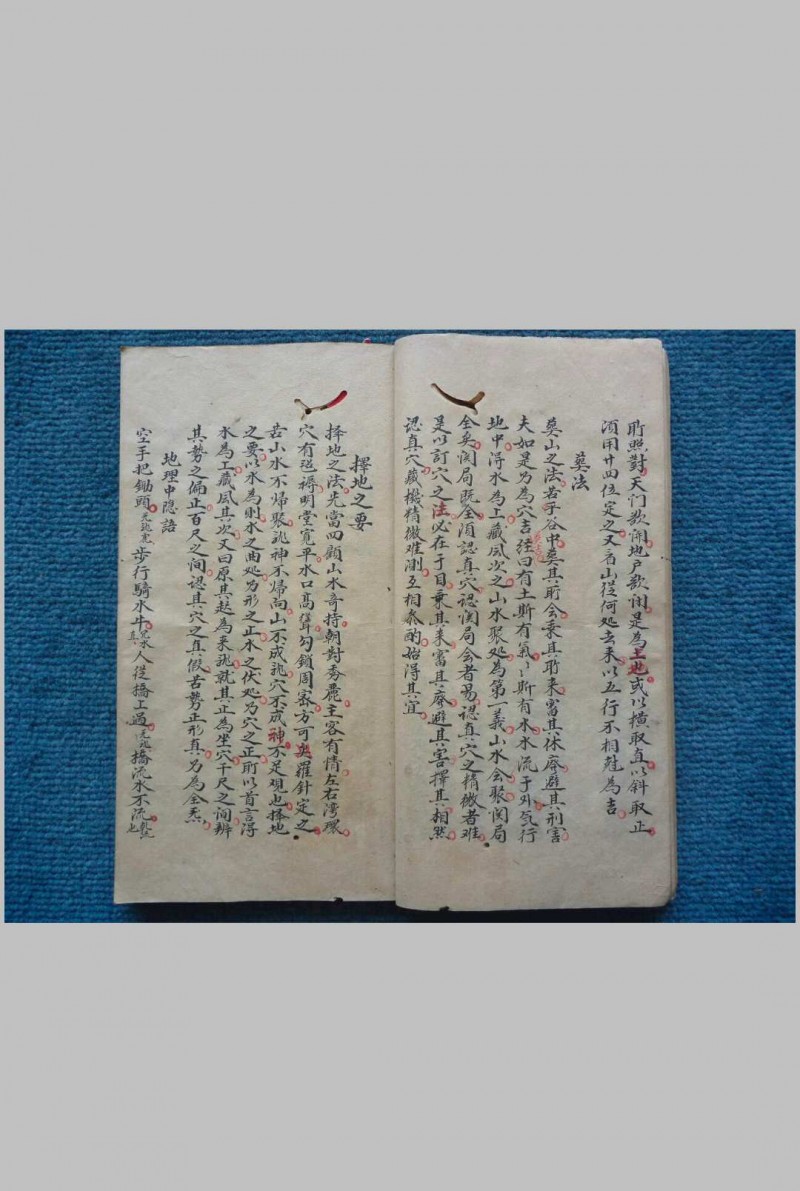 所照對天门歌闹地户歌闹是為主也或以横取直以斜取正
須用廿四位定之又看山從何処去来以五行不相尅為吉
塟法
塟山之法若乎谷中塟其所会乘其所来審其休廢避其刑害
夫如是乃為穴吉经曰有土斯有氣〻斯有水水流于外気行
地中得水為上藏风次之山水聚処為第一義山水会聚関局
全矣関局既全須認真穴認関局会者易認真穴之精微者难
是以訂穴之法必在于目乘其来審其廢避其害擇其相然
認真穴藏機精微难測互相叅酌始得其宜
擇地之要
择地之法先當四顧山水竒特朝對秀麗主客有情左右灣環
穴有裀褥明堂寬平水口高聳勾鎖周密方可奥羅針定之
若山水不歸聚龍神不歸向山不成龍穴不成神不足观也择地
之要以水為則水之曲処乃形之正水之伏処乃穴之正所以首言得
水為上藏风其次又曰原其起為来龍就其正為坐穴千尺之间辨
其势之偏正百尺之间認其穴之真假若势正形真乃為全忝
地理中隐語
空手把锄頭 步行騎水牛 人從橋上過 橋流水不流